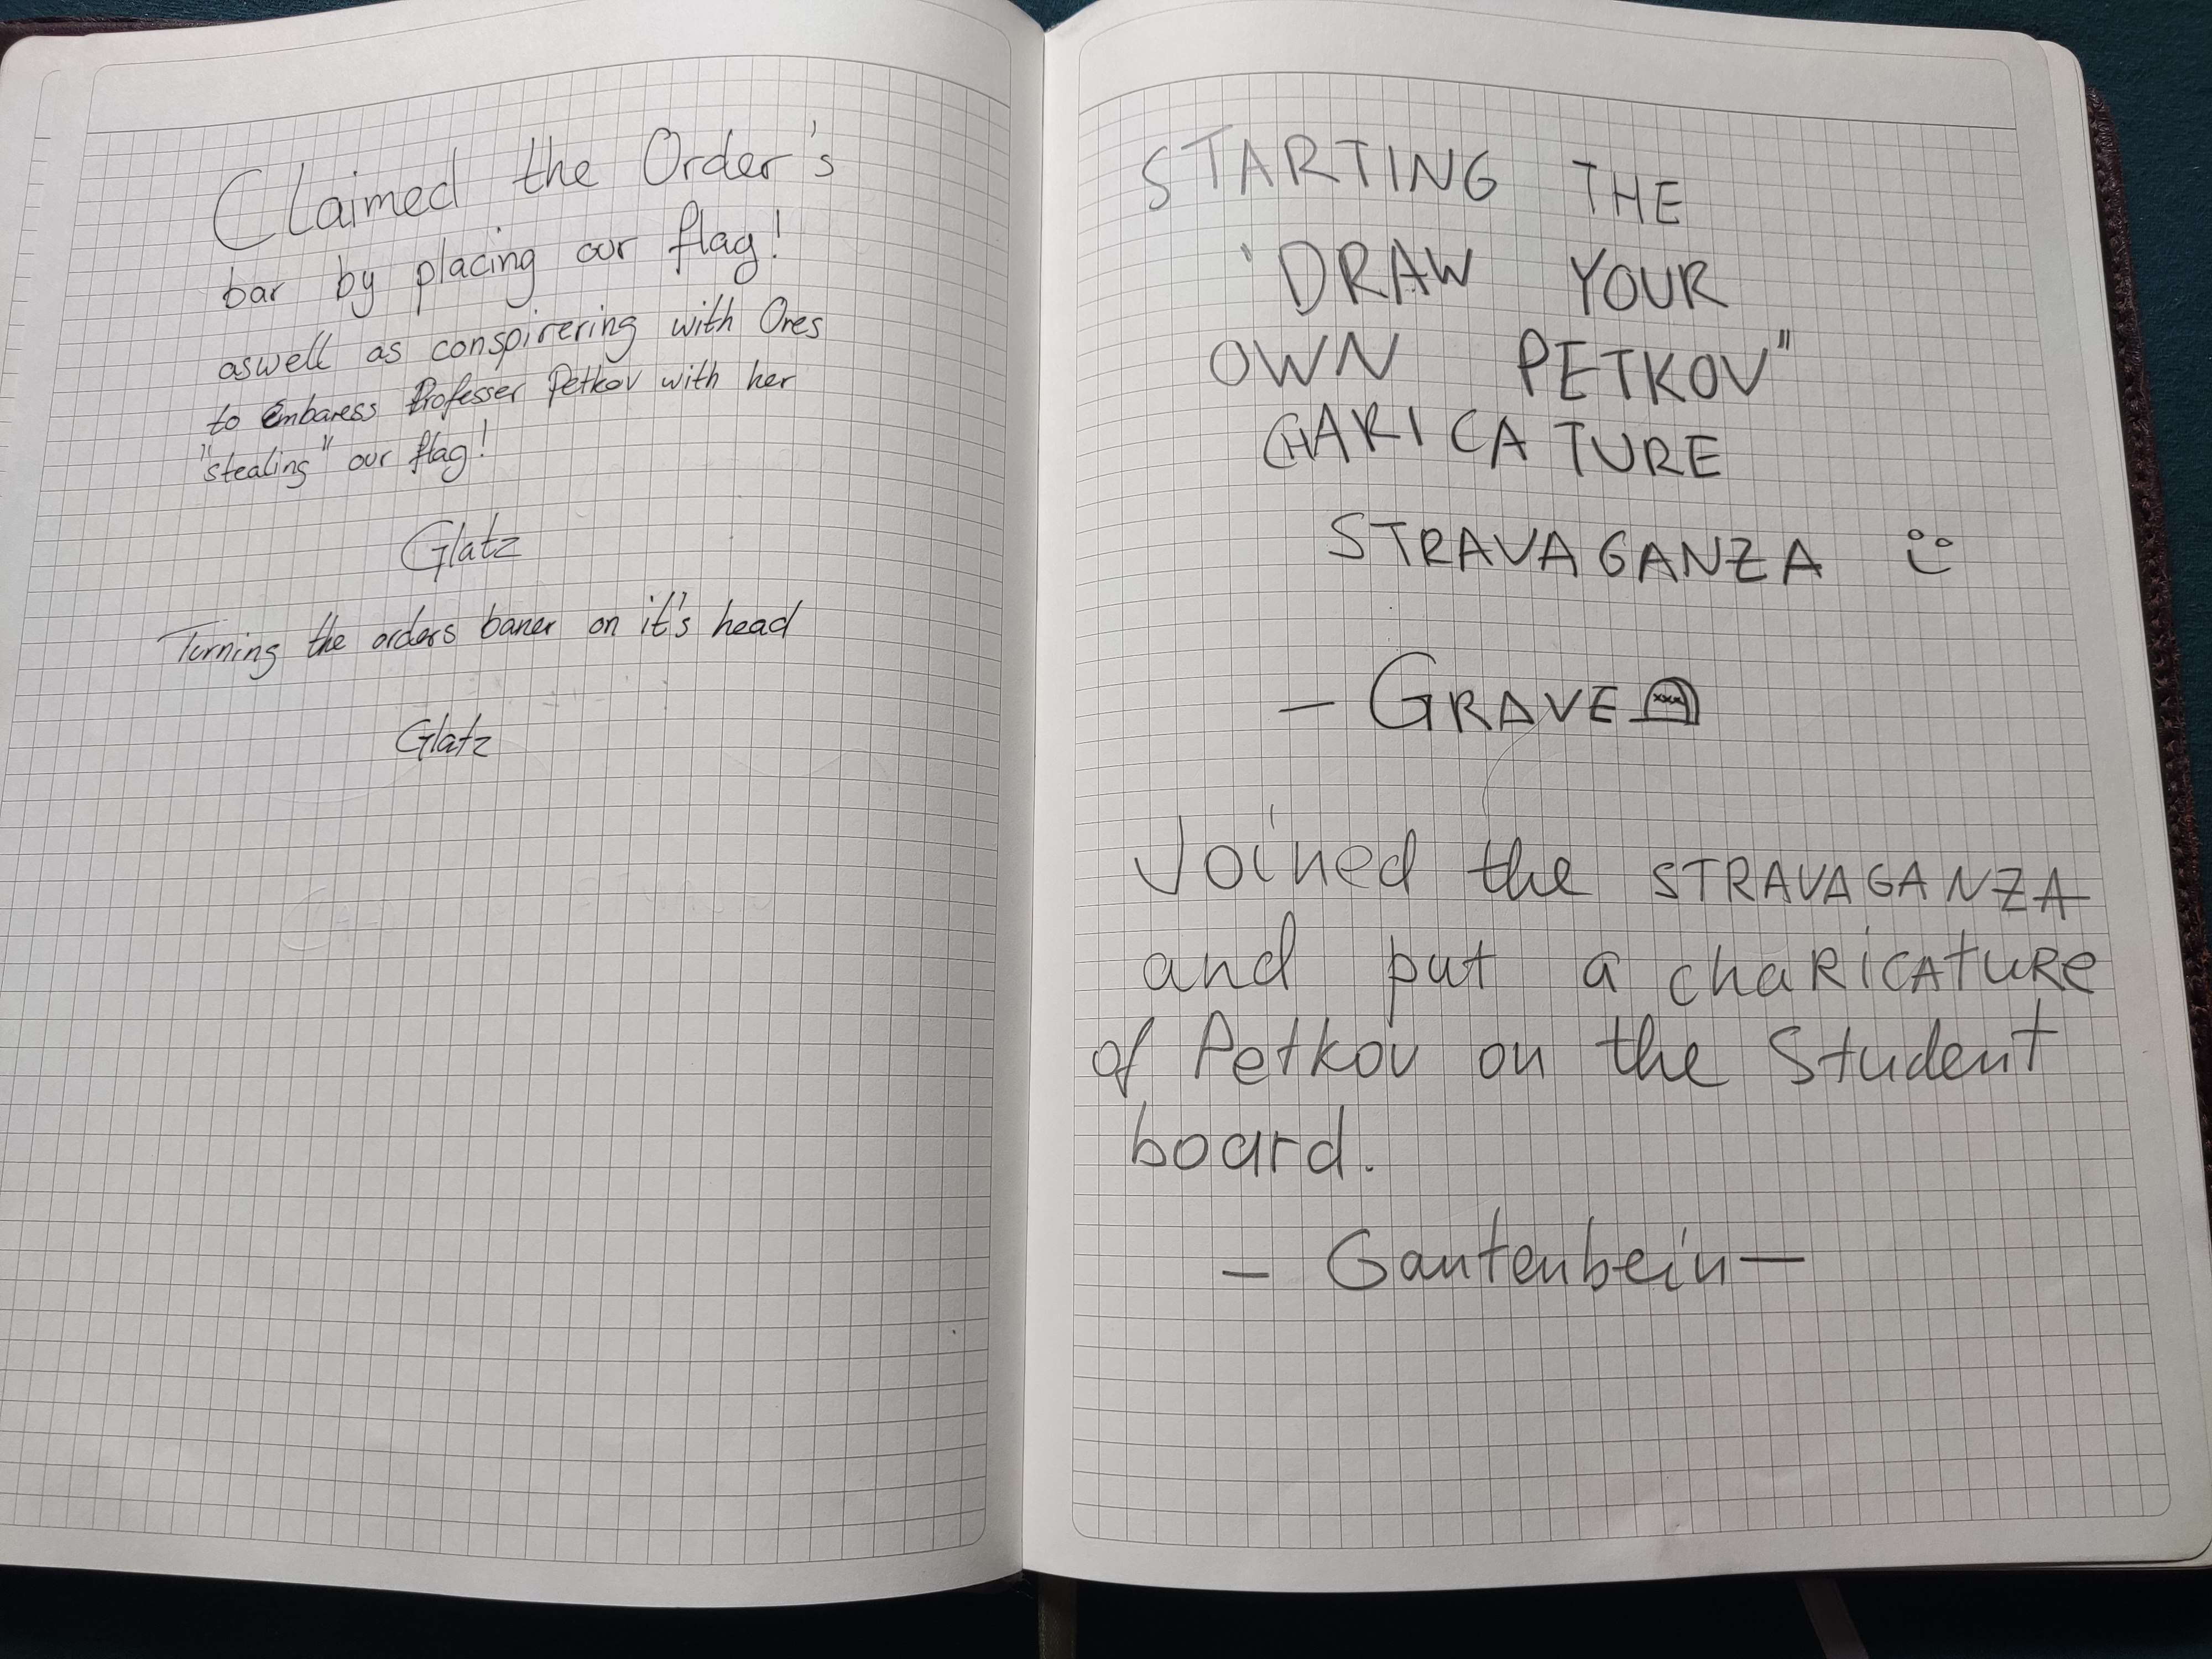 Claimed the Order's
bar by placing our flag!
aswell as conspirering with Ores
to Embaress Professer Petkov with her
"stealing" our flag!
Glatz
Turning the orders baner on it's head
Glatz
STARTING THE
'DRAW YOUR
OWN PETKOV"
CHARICATURE
STRAVAGANZA
- GRAVE
xxx
Joined the STRAVAGANZA
and put a chaRiCATURe
of Petkov on the Student
board.
- Gantenbein -